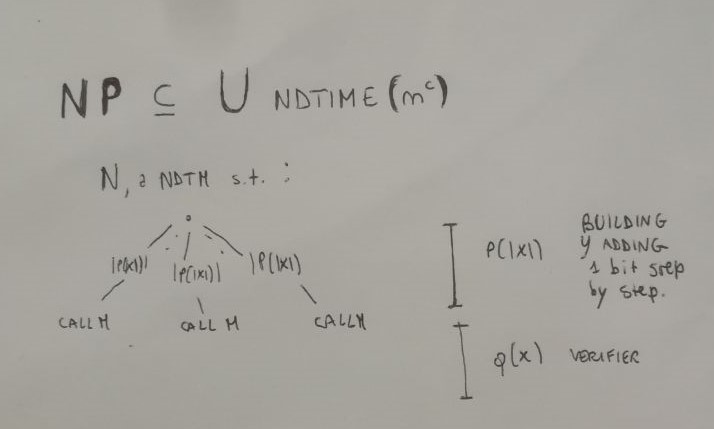 NP ⊆ U NDTIME (m^c)
N, a NDTM s.t. :
|P(x)| |P(|x|)| |P(|x|)
CALL M CALL M CALL M
P(|x|) BUILDING
y ADDING
1 bit step
by step.
q(x) VERIFIER